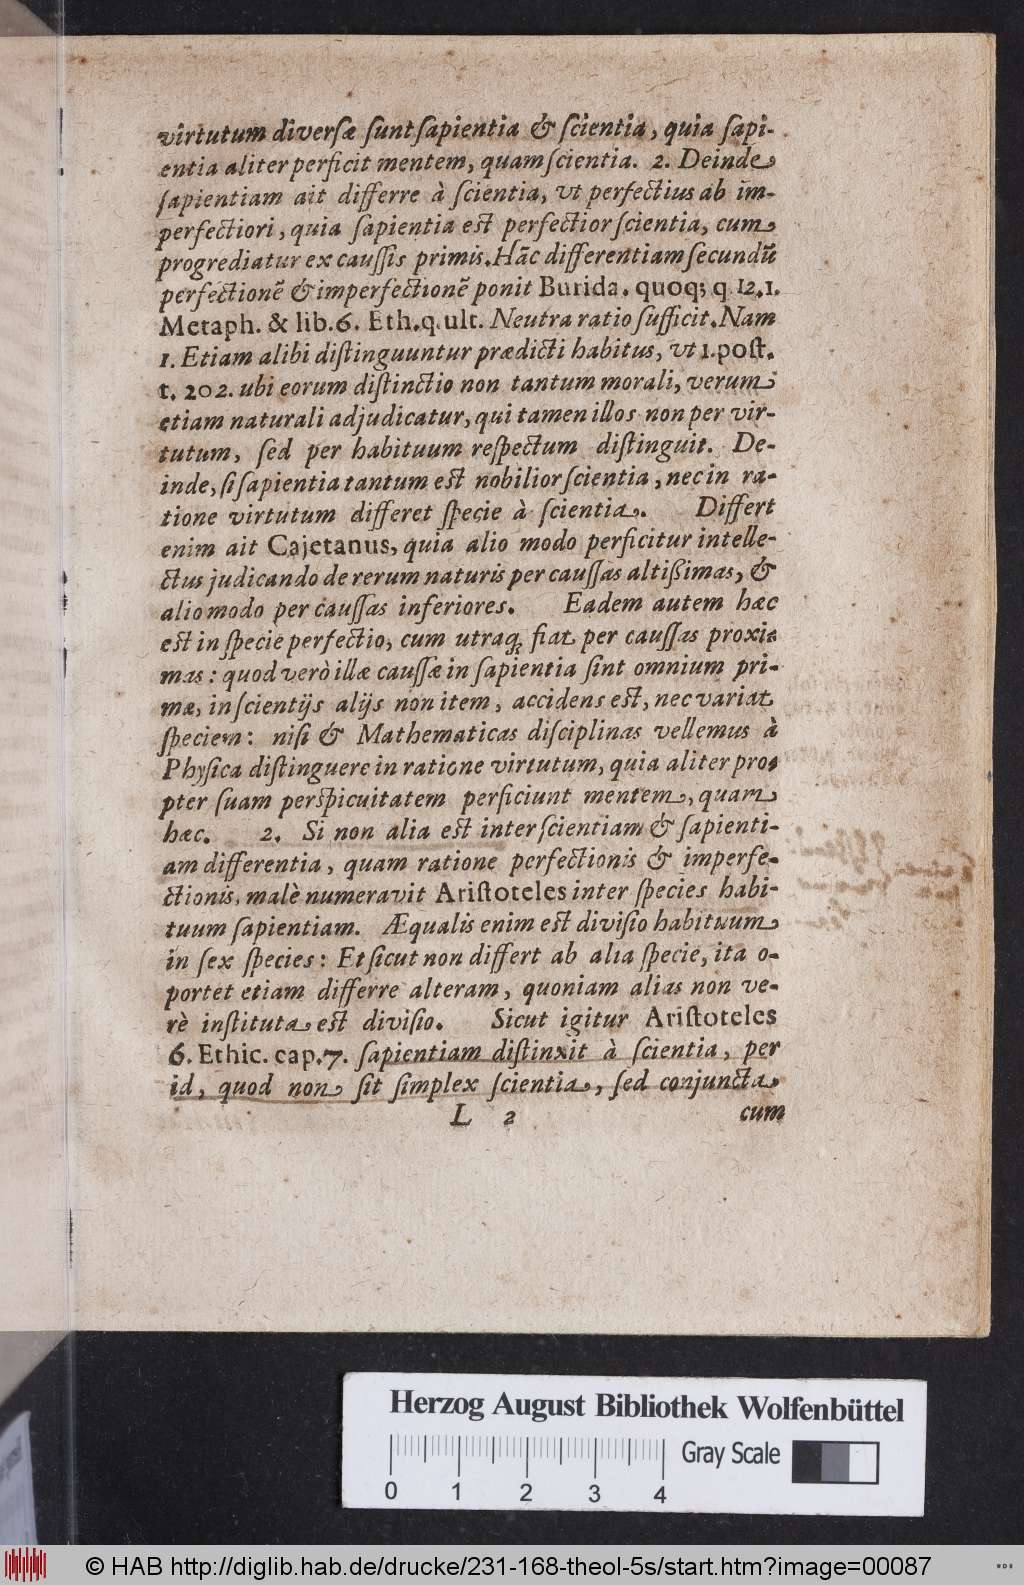 virtutum diversæ sunt sapientia & scientia, quia sapi-
entia aliter perficit mentem, quam scientia. 2. Deinde
sapientiam ait differre à scientia, ut perfectius ab im-
perfectiori, quia sapientia est perfectior scientia, cum
progrediatur ex caussis primis. Hãc differentiam secundũ
perfectionẽ & imperfectionẽ ponit Burida. quoq; q. 12. 1.
Metaph. & lib. 6. Eth. q. ult. Neutra ratio sufficit. Nam
1. Etiam alibi distinguuntur prædicti habitus, ut 1. post.
t. 202. ubi eorum distinctio non tantum morali, verum
etiam naturali adjudicatur, qui tamen illos non per vir-
tutum, sed per habituum respectum distinguit. De-
inde, si sapientia tantum est nobilior scientia, nec in ra-
tione virtutum differet specie à scientia. Differt
enim ait Cajetanus, quia alio modo perficitur intelle-
ctus judicando de rerum naturis per caussas altißimas, &
alio modo per caussas inferiores. Eadem autem hæc
est in specie perfectio, cum utraq; fiat per caussas proxi-
mas: quod verò illæ caussæ in sapientia sint omnium pri-
mæ, in scientijs alijs non item, accidens est, nec variat
speciem: nisi & Mathematicas disciplinas vellemus à
Physica distinguere in ratione virtutum, quia aliter pro-
pter suam perspicuitatem perficiunt mentem, quam
hæc. 2. Si non alia est inter scientiam & sapienti-
am differentia, quam ratione perfectionis & imperfe-
ctionis, malè numeravit Aristoteles inter species habi-
tuum sapientiam. Æqualis enim est divisio habituum
in sex species: Et sicut non differt ab alia specie, ita o-
portet etiam differre alteram, quoniam alias non ve-
rè instituta est divisio. Sicut igitur Aristoteles
6. Ethic. cap. 7. sapientiam distinxit à scientia, per
id, quod non sit simplex scientia, sed conjuncta
L 2 cum
Herzog August Bibliothek Wolfenbüttel
Gray Scale
0 1 2 3 4
© HAB http://diglib.hab.de/drucke/231-168-theol-5s/start.htm?image=00087